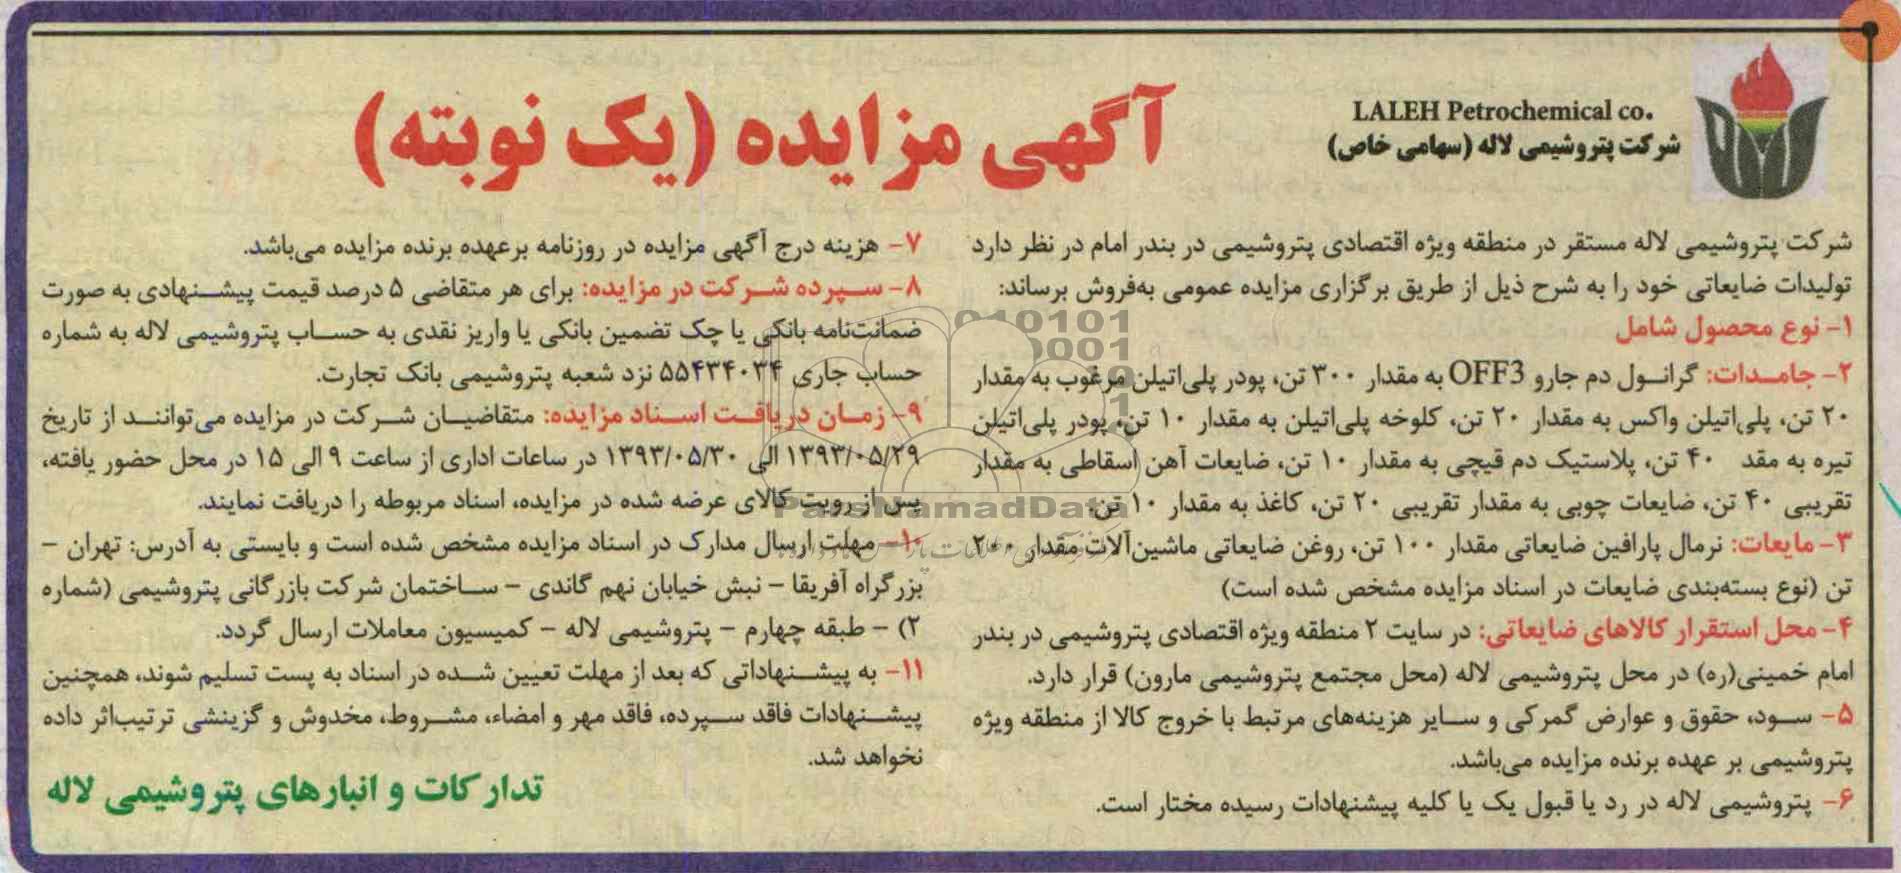 LALEH Petrochemical co.
شرکت پتروشیمی لاله (سهامی خاص)
آگهی مزایده (یک نوبته)
شرکت پتروشیمی لاله مستقر در منطقه ویژه اقتصادی پتروشیمی در بندر امام در نظر دارد
تولیدات ضایعاتی خود را به شرح ذیل از طریق برگزاری مزایده عمومی به‌فروش برساند:
۱- نوع محصول شامل
۲- جامدات: گرانول دم جارو OFF3 به مقدار ۳۰۰ تن، پودر پلی‌اتیلن مرغوب به مقدار
۲۰ تن، پلی‌اتیلن واکس به مقدار ۲۰ تن، کلوخه پلی‌اتیلن به مقدار ۱۰ تن، پودر پلی‌اتیلن
تیره به مقد ۴۰ تن، پلاستیک دم قیچی به مقدار ۱۰ تن، ضایعات آهن اسقاطی به مقدار
تقریبی ۴۰ تن، ضایعات چوبی به مقدار تقریبی ۲۰ تن، کاغذ به مقدار ۱۰ تن.
۳- مایعات: نرمال پارافین ضایعاتی مقدار ۱۰۰ تن، روغن ضایعاتی ماشین‌آلات مقدار ۲۰۰
تن (نوع بسته‌بندی ضایعات در اسناد مزایده مشخص شده است)
۴- محل استقرار کالاهای ضایعاتی: در سایت ۲ منطقه ویژه اقتصادی پتروشیمی در بندر
امام خمینی(ره) در محل پتروشیمی لاله (محل مجتمع پتروشیمی مارون) قرار دارد.
۵- سود، حقوق و عوارض گمرکی و سایر هزینه‌های مرتبط با خروج کالا از منطقه ویژه
پتروشیمی بر عهده برنده مزایده می‌باشد.
۶- پتروشیمی لاله در رد یا قبول یک یا کلیه پیشنهادات رسیده مختار است.
۷- هزینه درج آگهی مزایده در روزنامه برعهده برنده مزایده می‌باشد.
۸- سپرده شرکت در مزایده: برای هر متقاضی ۵ درصد قیمت پیشنهادی به صورت
ضمانت‌نامه بانکی یا چک تضمین بانکی یا واریز نقدی به حساب پتروشیمی لاله به شماره
حساب جاری ۵۵۴۳۴۰۳۴ نزد شعبه پتروشیمی بانک تجارت.
۹- زمان دریافت اسناد مزایده: متقاضیان شرکت در مزایده می‌توانند از تاریخ
۱۳۹۳/۰۵/۲۹ الی ۱۳۹۳/۰۵/۳۰ در ساعات اداری از ساعت ۹ الی ۱۵ در محل حضور یافته،
پس از رویت کالای عرضه شده در مزایده، اسناد مربوطه را دریافت نمایند.
۱۰- مهلت ارسال مدارک در اسناد مزایده مشخص شده است و بایستی به آدرس: تهران -
بزرگراه آفریقا - نبش خیابان نهم گاندی - ساختمان شرکت بازرگانی پتروشیمی (شماره
۲) - طبقه چهارم - پتروشیمی لاله - کمیسیون معاملات ارسال گردد.
۱۱- به پیشنهاداتی که بعد از مهلت تعیین شده در اسناد به پست تسلیم شوند، همچنین
پیشنهادات فاقد سپرده، فاقد مهر و امضاء، مشروط، مخدوش و گزینشی ترتیب‌اثر داده
نخواهد شد.
تدارکات و انبارهای پتروشیمی لاله
ParsNamadData